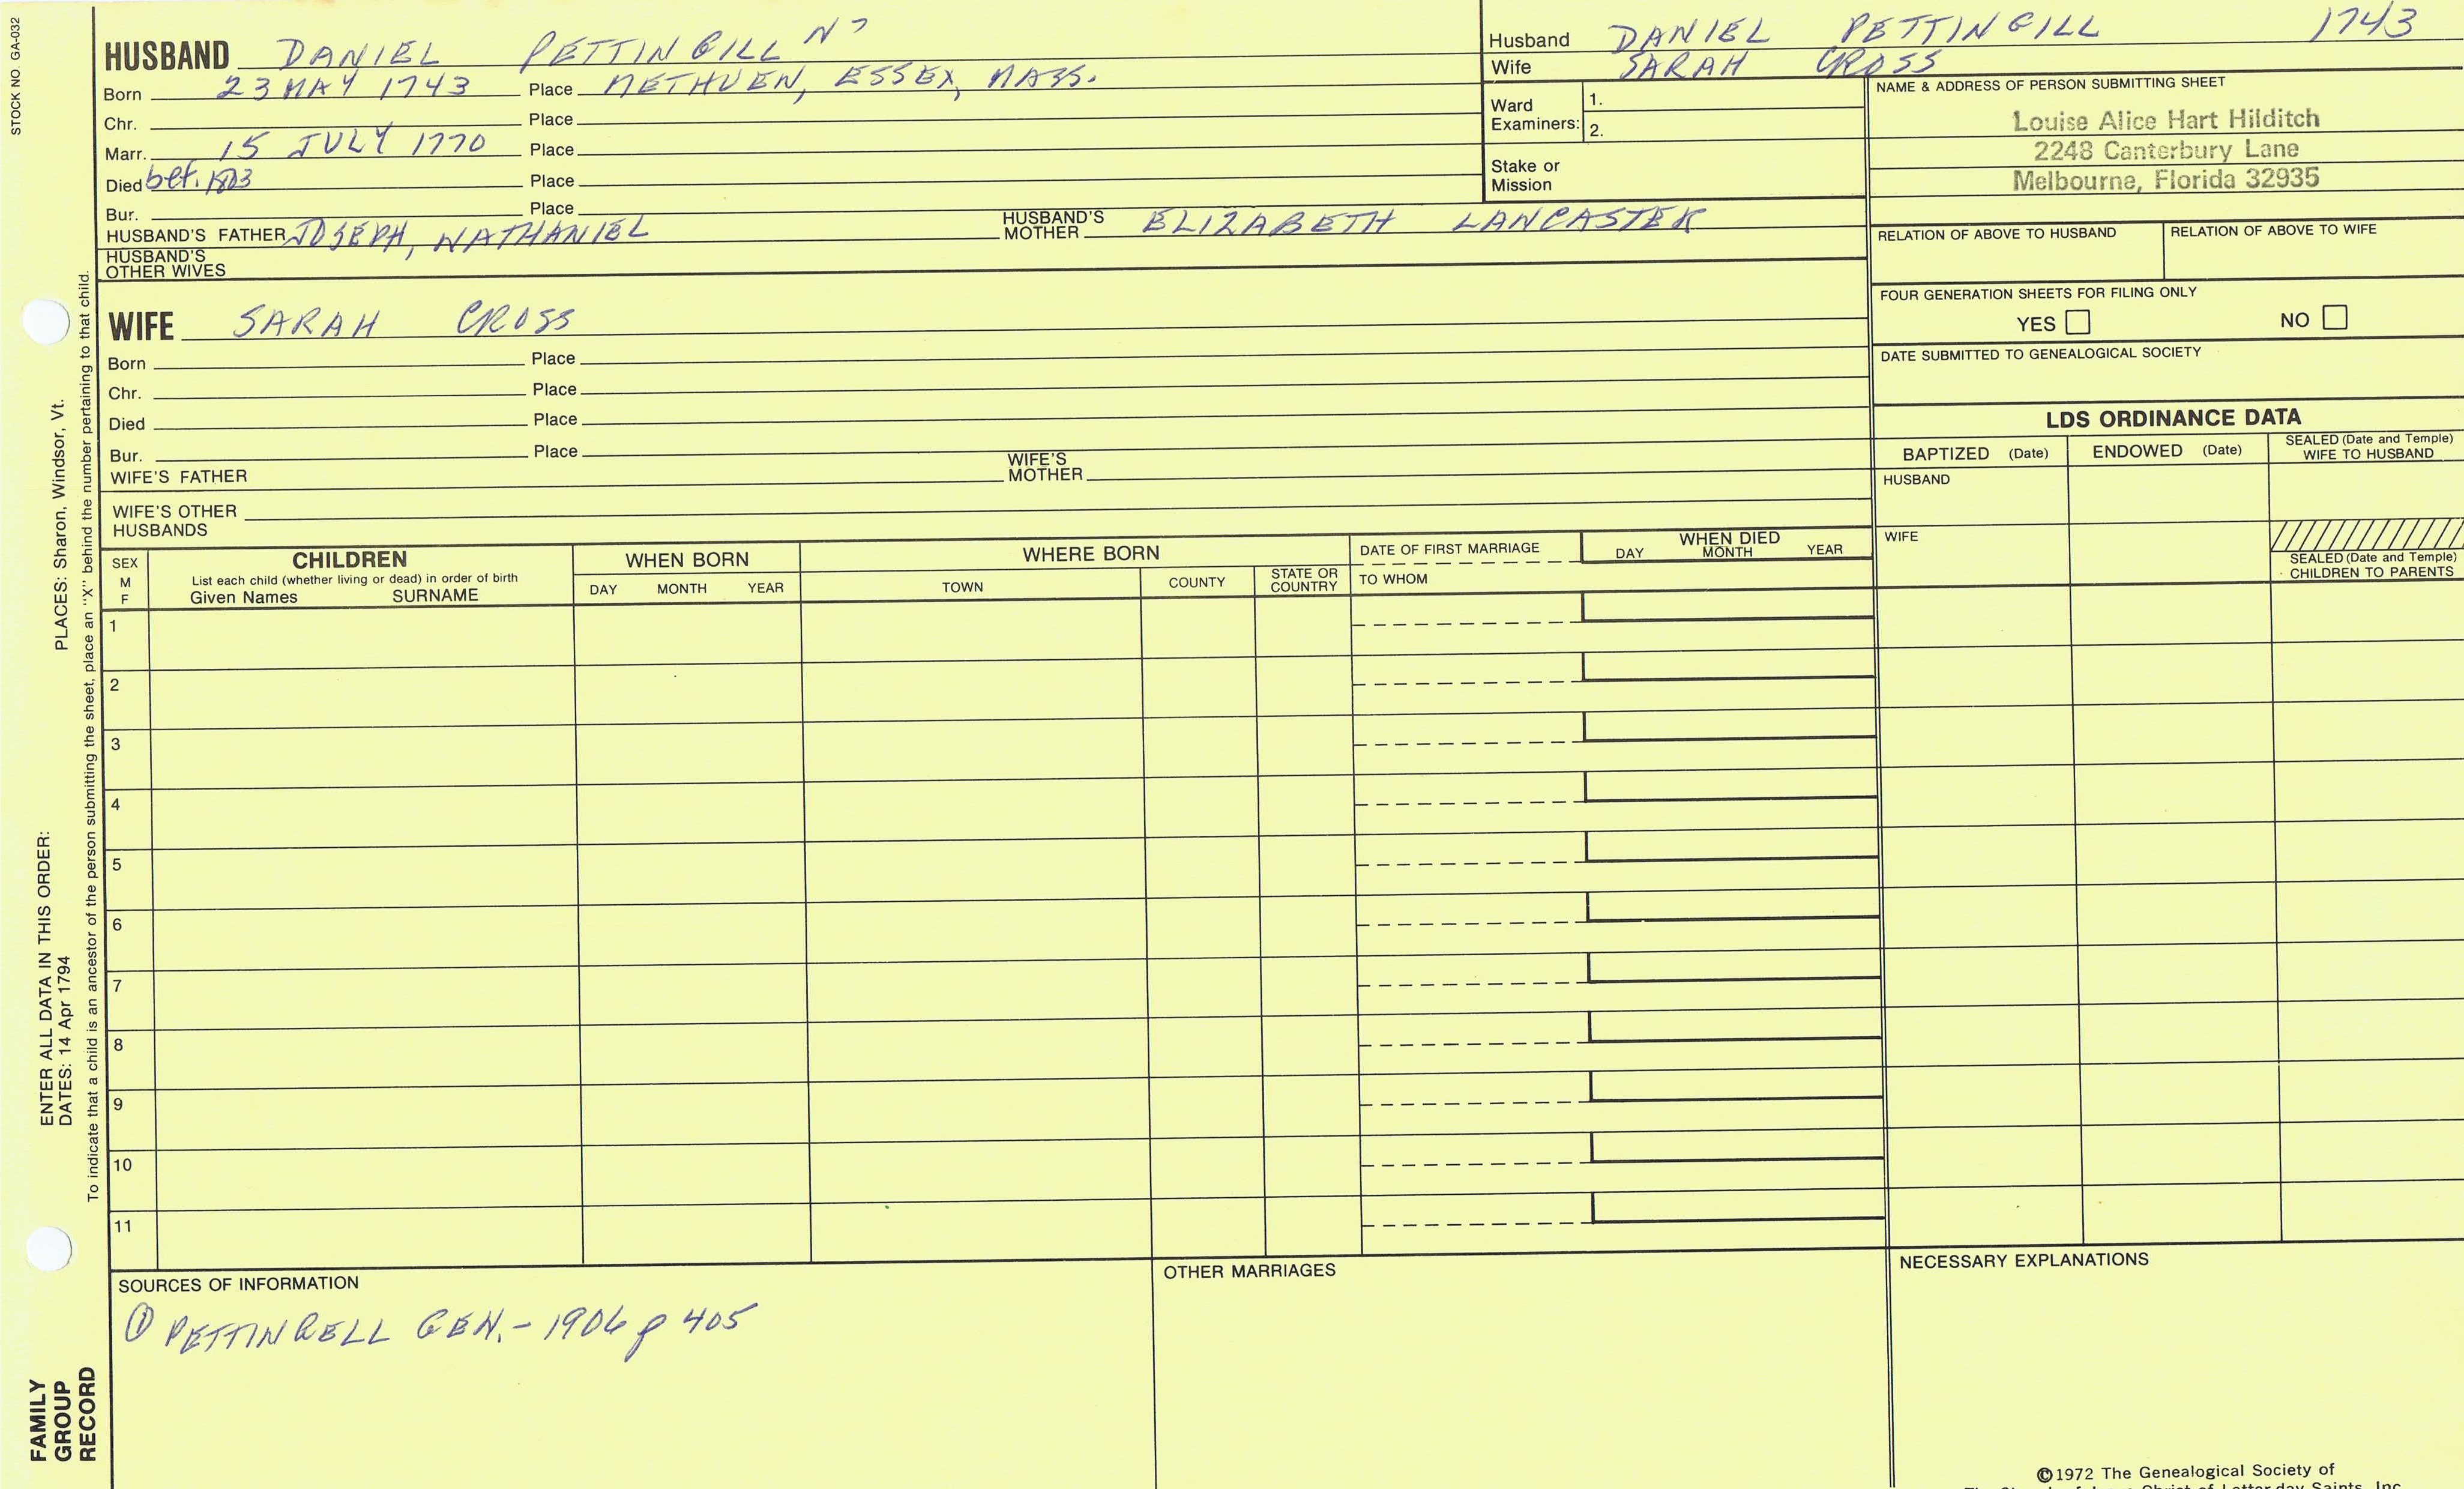 STOCK NO GA-032
HUSBAND DANIEL PETTINGILL N7
Born 23 MAY 1743 Place METHUEN, ESSEX, MASS.
Chr. Place
Marr. 15 JULY 1770 Place
Died bef. 1803 Place
Bur. Place
HUSBAND'S FATHER JOSEPH, NATHANIEL HUSBAND'S MOTHER ELIZABETH LANCASTER
HUSBAND'S OTHER WIVES
Husband DANIEL PETTINGILL 1743
Wife SARAH CROSS
Ward Examiners: 1.
2.
Stake or Mission
NAME & ADDRESS OF PERSON SUBMITTING SHEET
Louise Alice Hart Hilditch
2248 Canterbury Lane
Melbourne, Florida 32935
RELATION OF ABOVE TO HUSBAND RELATION OF ABOVE TO WIFE
FOUR GENERATION SHEETS FOR FILING ONLY
YES NO
DATE SUBMITTED TO GENEALOGICAL SOCIETY
WIFE SARAH CROSS
Born Place
Chr. Place
Died Place
Bur. Place
WIFE'S FATHER WIFE'S MOTHER
WIFE'S OTHER HUSBANDS
LDS ORDINANCE DATA
BAPTIZED (Date) ENDOWED (Date) SEALED (Date and Temple) WIFE TO HUSBAND
HUSBAND
WIFE
SEALED (Date and Temple) CHILDREN TO PARENTS
SEX M F
CHILDREN
List each child (whether living or dead) in order of birth
Given Names SURNAME
WHEN BORN
DAY MONTH YEAR
WHERE BORN
TOWN COUNTY STATE OR COUNTRY
DATE OF FIRST MARRIAGE
TO WHOM
WHEN DIED
DAY MONTH YEAR
1
2
3
4
5
6
7
8
9
10
11
SOURCES OF INFORMATION
① PETTINGELL GEN. - 1906 p 405
OTHER MARRIAGES
NECESSARY EXPLANATIONS
©1972 The Genealogical Society of
ENTER ALL DATA IN THIS ORDER:
DATES: 14 Apr 1794 PLACES: Sharon, Windsor, Vt.
To indicate that a child is an ancestor of the person submitting the sheet, place an "X" behind the number pertaining to that child.
FAMILY
GROUP
RECORD